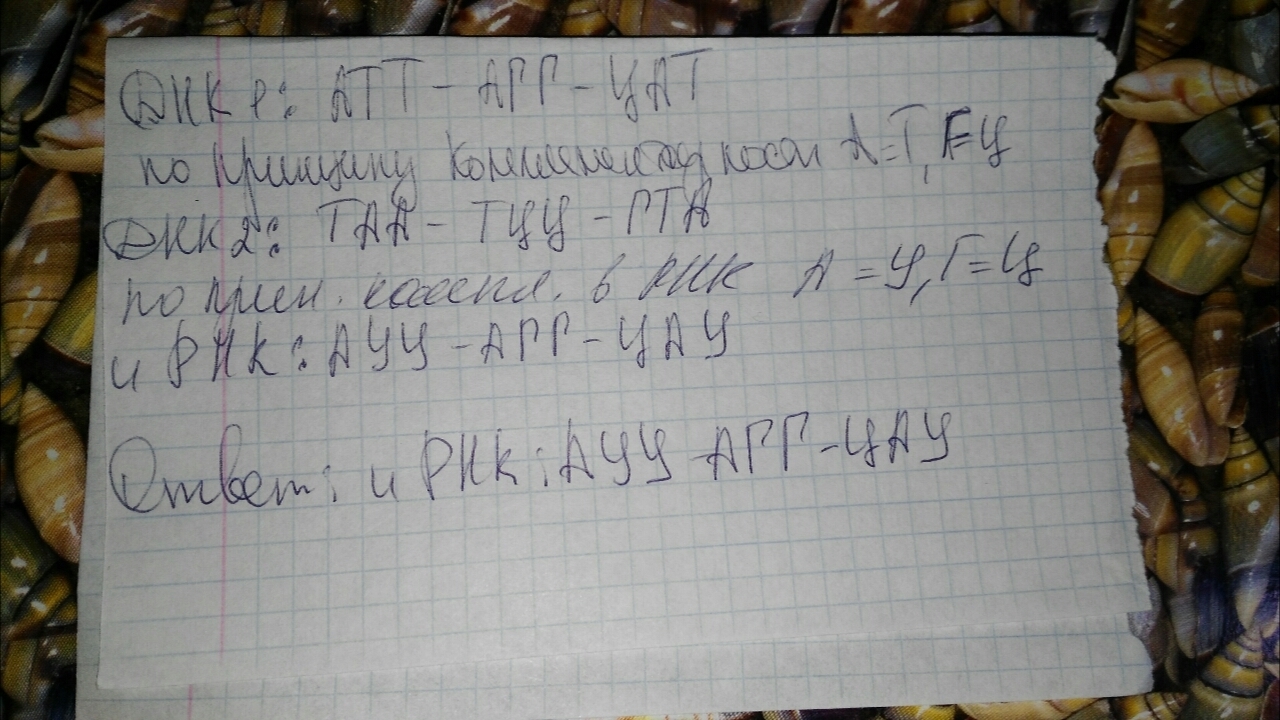 ДНК 1: АТТ - АГГ - ЦАТ
по принципу комплементарности А=Т, Г=Ц
ДНК 2: ТАА - ТЦЦ - ГТА
по прин. компл. в РНК А = У, Г = Ц
и РНК: АУУ - АГГ - ЦАУ
Ответ: и РНК: АУУ - АГГ - ЦАУ